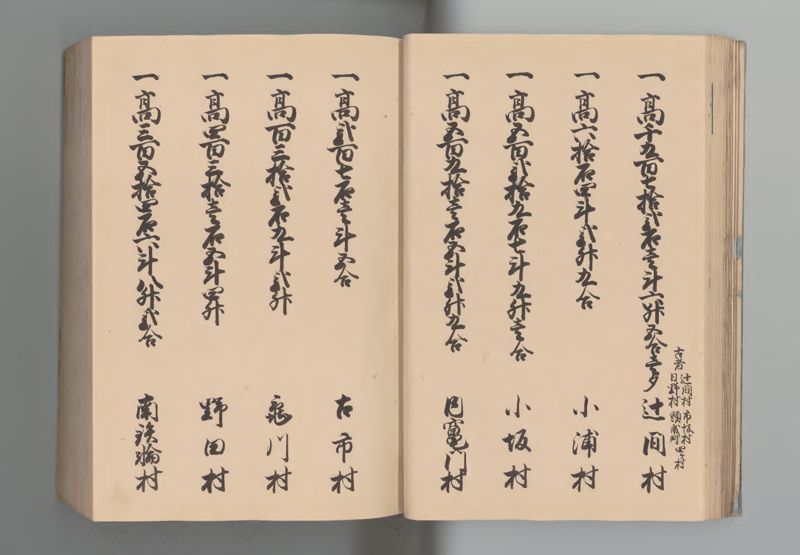 一高千五百七拾弐石壱斗六升五合壱夕 辻間村
古者 辻間村 市坂村
日野村 頭成町 四ケ村
一高六拾石四斗弐升九合 小浦村
一高五百弐拾九石七斗九升壱合 小坂村
一高五百九拾壱石五斗弐升九合 内竃門村
一高弐百七石壱斗五合 古市村
一高百三拾弐石九斗弐升 亀川村
一高四百三拾壱石五斗四升 野田村
一高三百五拾四石六斗八升弐合 南鉄輪村